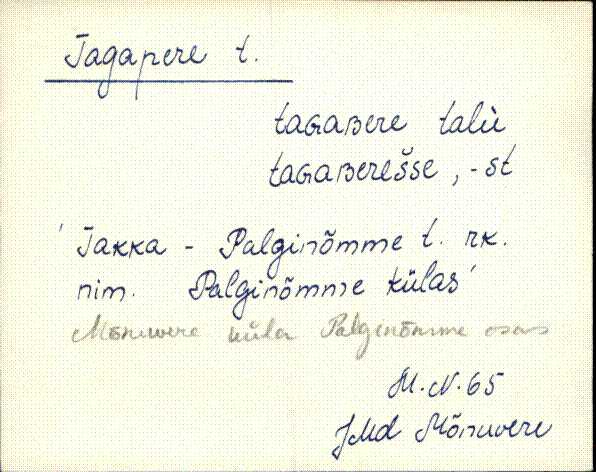 Tagapere t.
taGaʙere talù
taGaʙerešse, -st
'Takka - Palginõmme t. rk.
nim. Palginõmme külas'
Mõnuvere küla Palginõmme osas
M.N. 65
JMd Mõnuvere